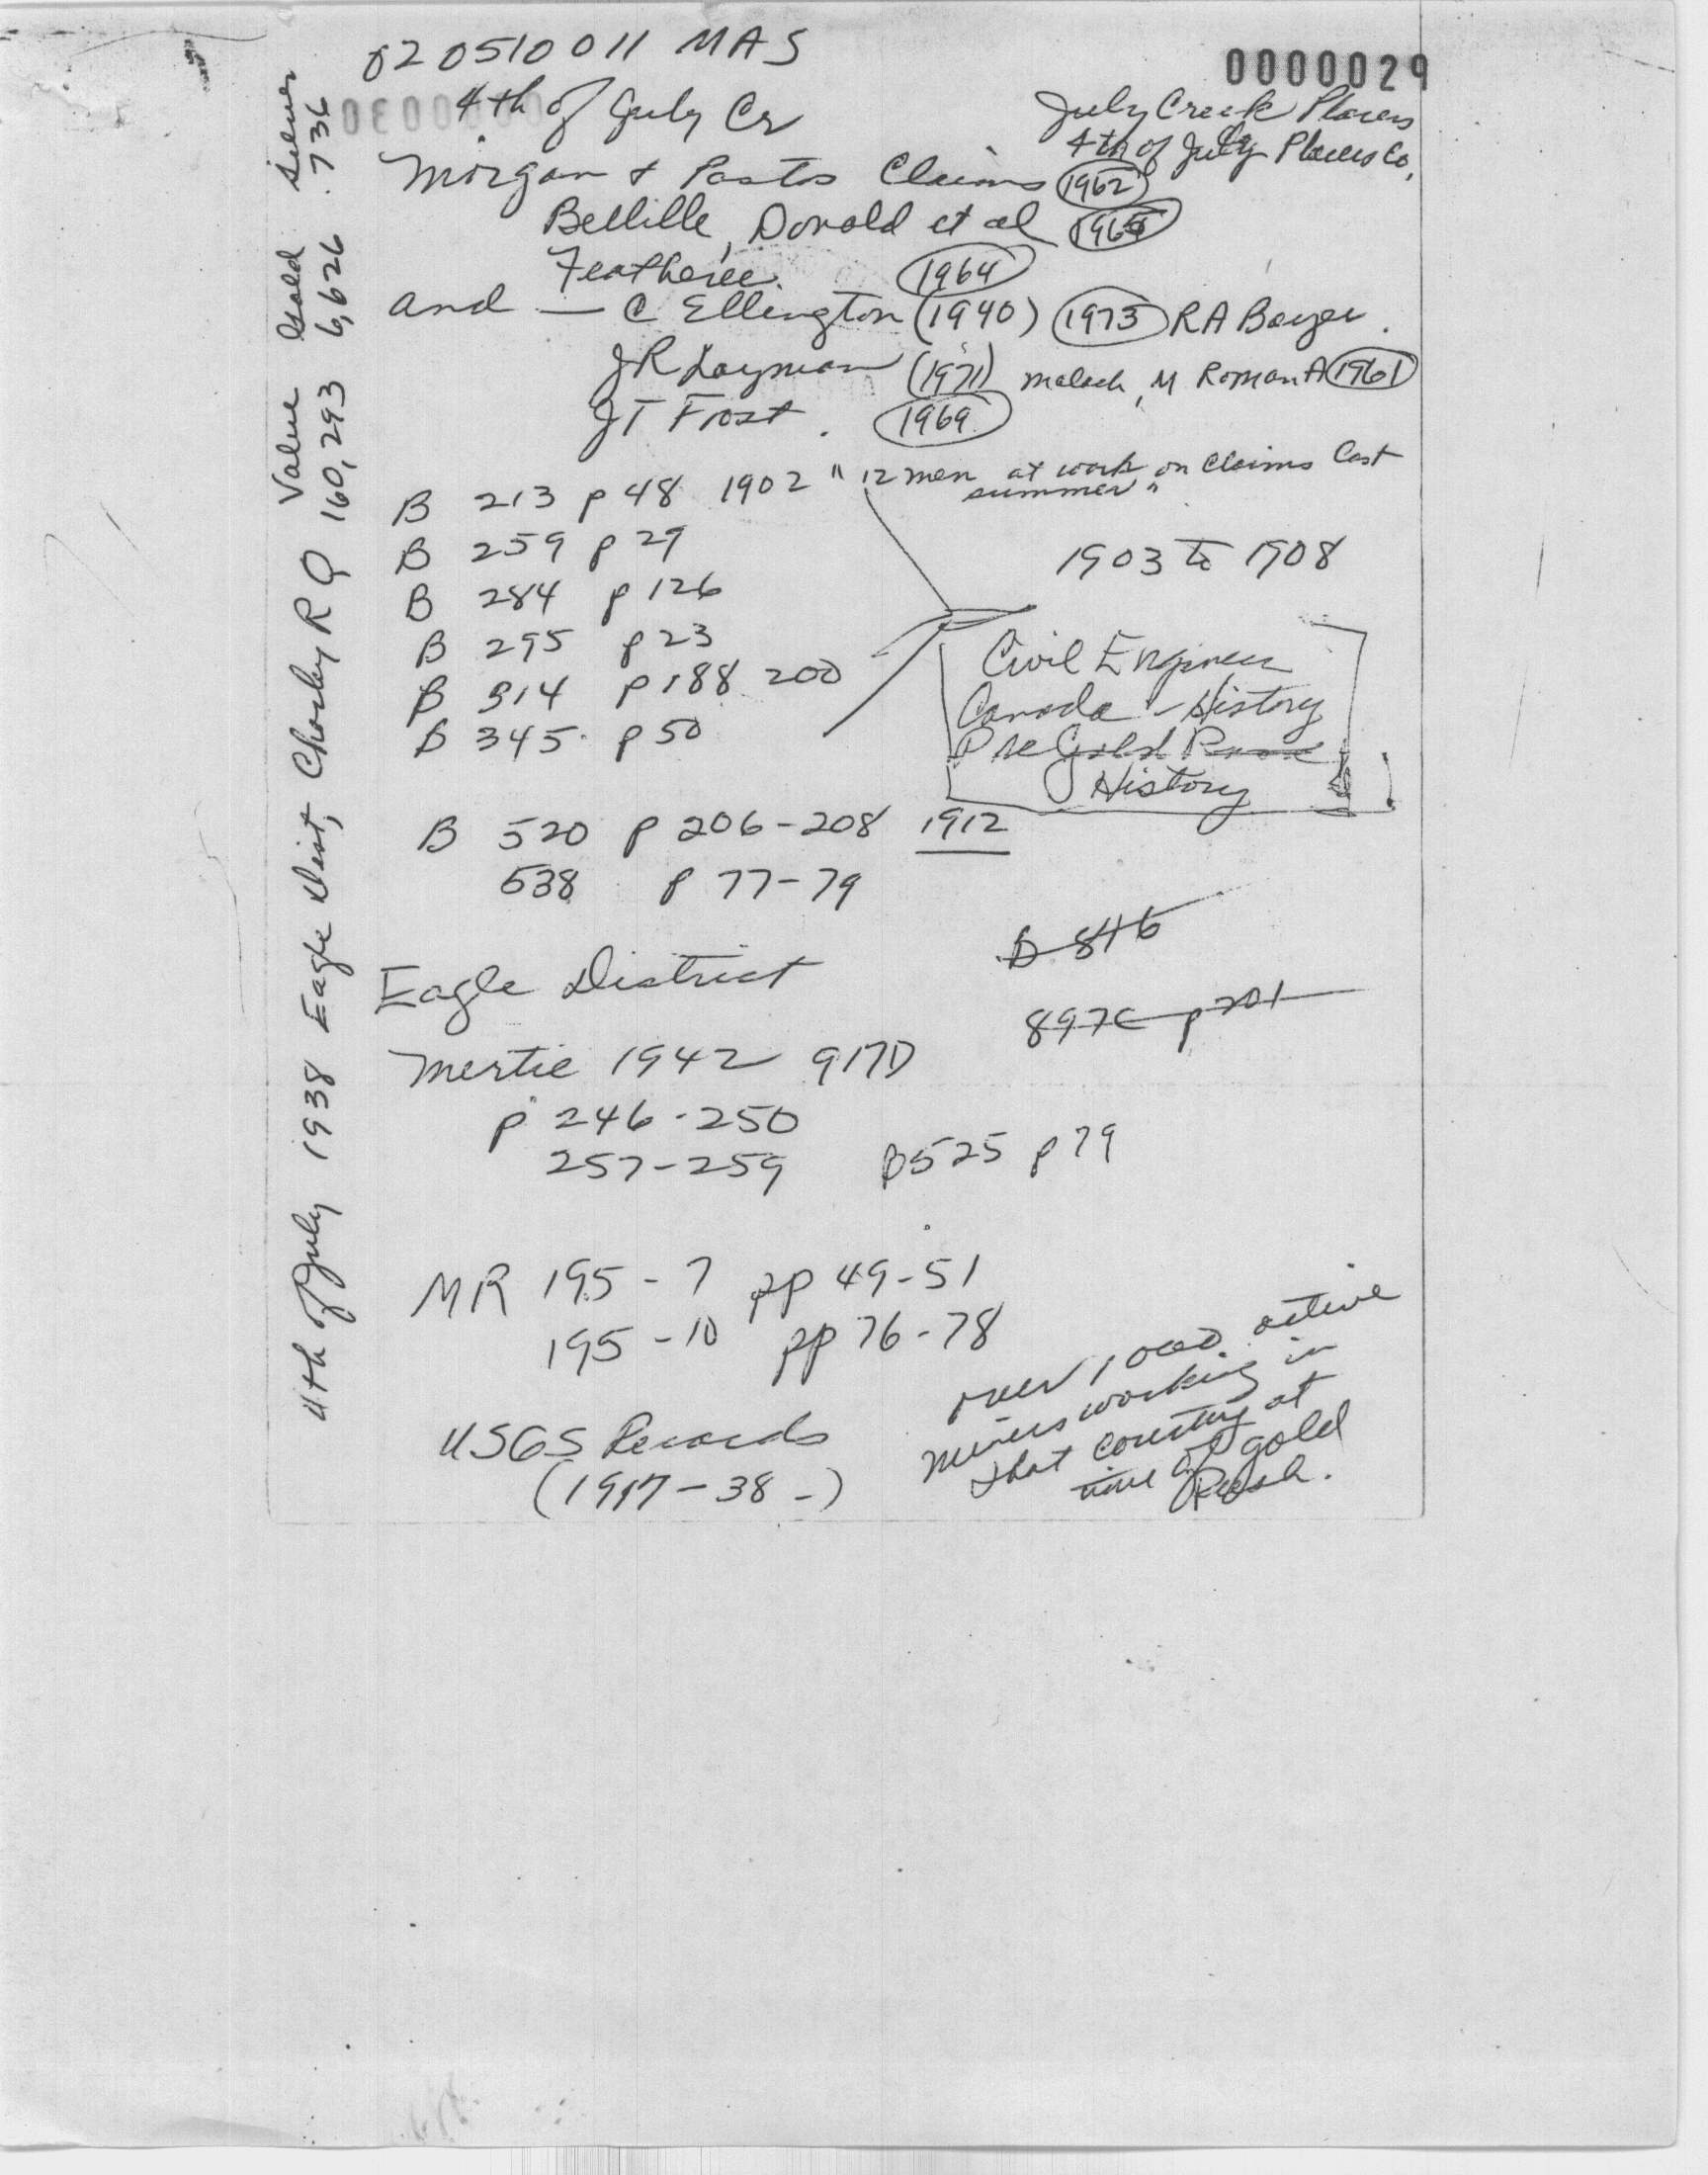 020510011 MAS
0000029
4th of July Cr
July Creek Placers
4th of July Placers Co,
Morgan + Pastos Claims 1962
Bellille, Donald et al
Featheree. 1964
and — C Ellington (1940) 1973 RA Boyer.
JR Layman (1971) Malach, M Roman A 1961
JT Frost. 1969
B 213 p 48 1902 "12 men at work on claims last
summer"
B 259 p 29
1903 to 1908
B 284 p 126
B 295 p 23
B 314 p 188 200
B 345 p 50
Civil Engineer
Canada - History
Pre Gold
History
B 520 p 206-208 1912
538 p 77-79
B 846
Eagle District
897C p 201
Mertie 1942 917D
p 246-250
257-259 B525 p 79
MR 195-7 pp 49-51
195-10 pp 76-78
USGS Records
(1917-38-)
over 1000 active
miners working in
that country at
time of gold
Rush.
Value Gold Silver
4th of July 1938 Eagle Dist, Chorley R Q 160,293 6,626 .736